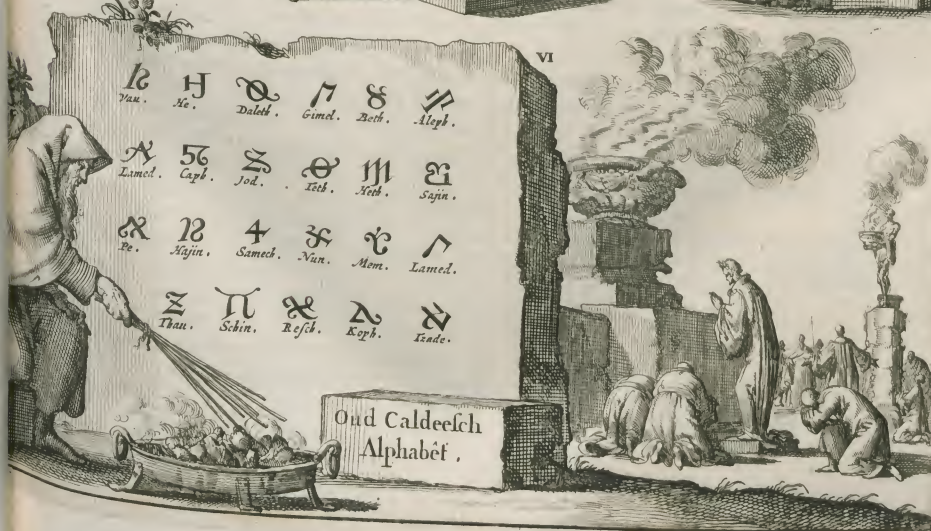 VI
Vau. He. Daleth. Gimel. Beth. Aleph.
Lamed. Caph. Jod. Teth. Heth. Sajin.
Pe. Hajin. Samech. Nun. Mem. Lamed.
Thau. Schin. Reſch. Koph. Tzade.
Oud Caldeeſch
Alphabét.